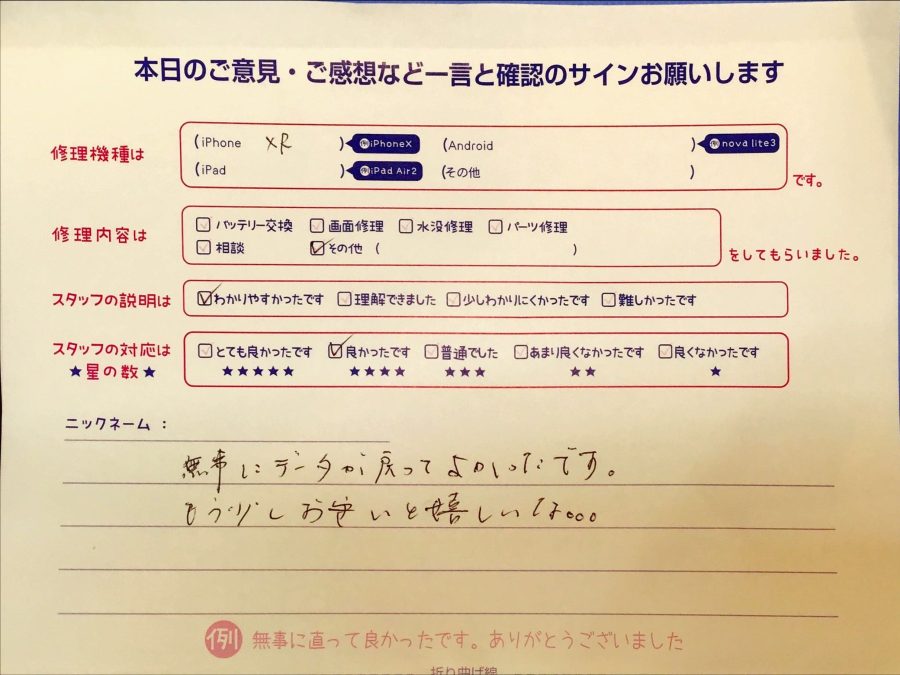 本日のご意見・ご感想など一言と確認のサインお願いします
修理機種は (iPhone XR ) 例iPhoneX (Android ) 例nova lite3
(iPad ) 例iPad Air2 (その他 ) です。
修理内容は バッテリー交換 画面修理 水没修理 パーツ修理
相談 その他 ( ) をしてもらいました。
スタッフの説明は わかりやすかったです 理解できました 少しわかりにくかったです 難しかったです
スタッフの対応は とても良かったです 良かったです 普通でした あまり良くなかったです 良くなかったです
★星の数★ ★★★★★ ★★★★ ★★★ ★★ ★
ニックネーム：
無事にデータが戻ってよかったです。
もう少しお安いと嬉しいな。。。
例 無事に直って良かったです。ありがとうございました
折り曲げ線